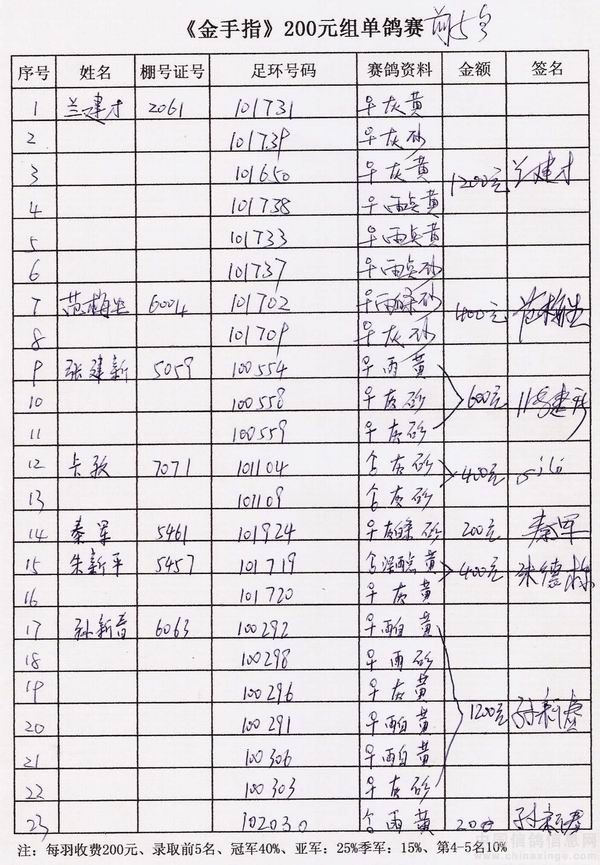 《金手指》200元组单鸽赛 前5名
序号 姓名 棚号证号 足环号码 赛鸽资料 金额 签名
1 兰建才 2061 101731 早灰黄
2 101739 早灰砂
3 101650 早灰黄 1200元 兰建才
4 101738 早雨点黄
5 101733 早雨点黄
6 101737 早雨点砂
7 范梅生 6004 101702 早雨绿砂 400元 范梅生
8 101709 早灰砂
9 张建新 5059 100554 早雨黄
10 100558 早灰砂 600元
11 100559 早灰砂
12 7071 101104 灰砂 400元
13 101109 灰砂
14 秦军 5461 101924 早 砂 200元 秦军
15 朱新平 5457 101719 黄 400元
16 101720 早灰黄
17 孙新喜 6063 100292 早雨白黄
18 100298 早雨砂
19 100296 早灰黄
20 100291 早雨白黄 1200元
21 100306 早雨白黄
22 100303 早灰砂
23 102030 雨黄 200
注：每羽收费200元、录取前5名、冠军40%、亚军：25%季军：15%、第4-5名10%
中国信鸽信息网
www.chinaxinge.com